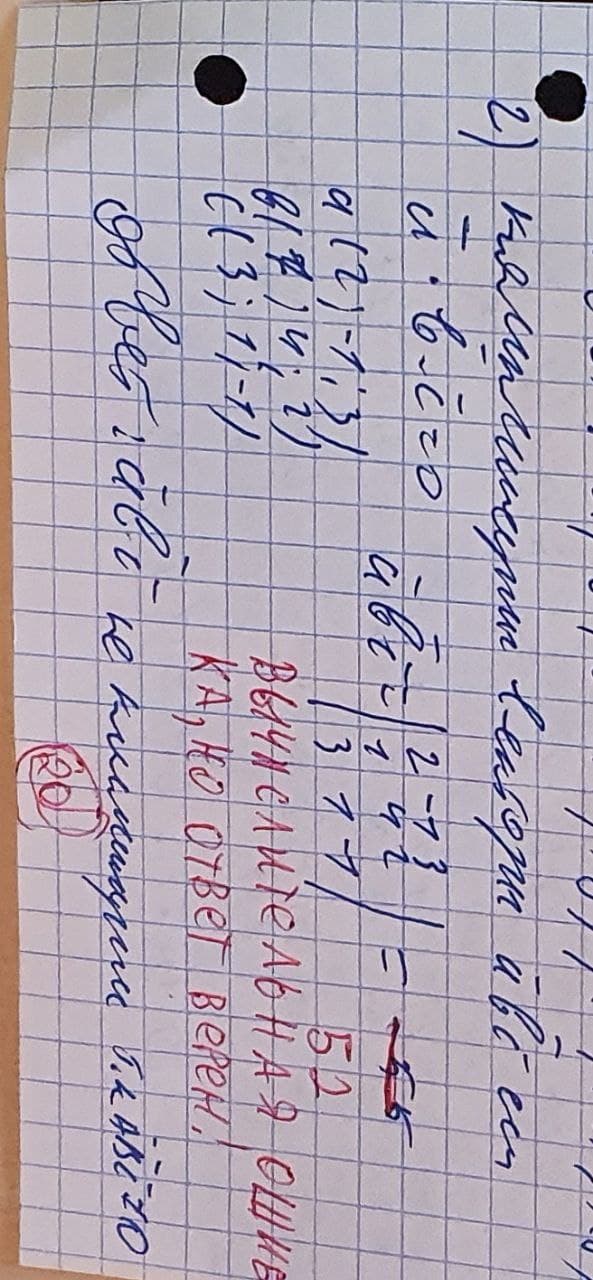 2) компланарны векторы āb̄c̄ если
ā · b̄ · c̄ = 0
āb̄c̄ = | 2 -1 3 | = 55
| 1 4 2 |
| 3 1 -1 |
52
a(2; -1; 3)
b(1; 4; 2)
c(3; 1; -1)
ВЫЧИСЛИТЕЛЬНАЯ ОШИБ
КА, НО ОТВЕТ ВЕРЕН!
ответ: āb̄c̄ не компланарны т.к āb̄c̄ ≠ 0
20